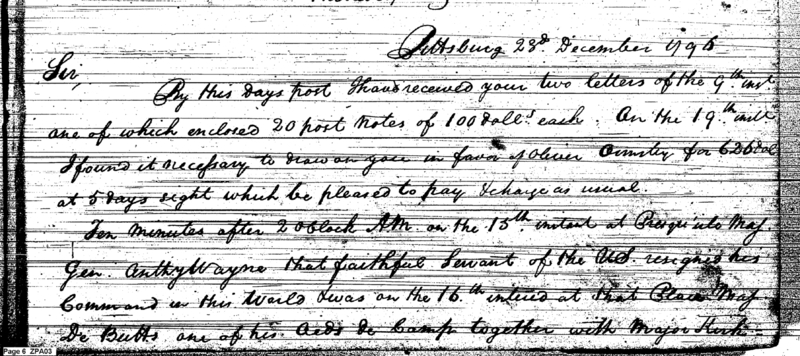 Pittsburg 23d December 1796
Sir,
By this days post I have received your two letters of the 9th inst.
one of which enclosed 20 post notes of 100 dolls. each. On the 19th inst.
I found it necessary to draw on you in favor of Oliver Ormsby for 626 dol
at 5 days sight which be pleased to pay & charge as usual.
Ten minutes after 2 oClock AM. on the 15th. instant at Presqu'isle Maj
Gen. Anthy Wayne that faithful Servant of the U.S. resigned his
Command in this World & was on the 16th intered at that Place Maj
De Butts one of his Aids de Camp together with Major Kirk-
Page 6 ZPA03